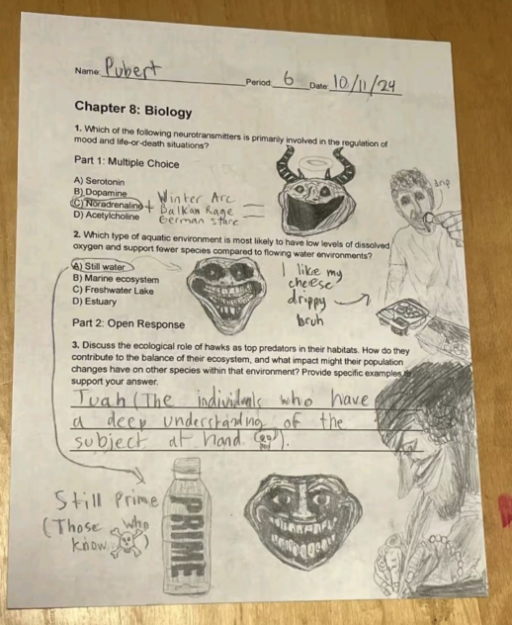 Name: Pubert
Period: 6 Date: 10/11/24
Chapter 8: Biology
1. Which of the following neurotransmitters is primarily involved in the regulation of
mood and life-or-death situations?
Part 1: Multiple Choice
A) Serotonin
B) Dopamine
C) Noradrenaline
D) Acetylcholine
+ Winter Arc
Balkan Rage
German stare
=
2. Which type of aquatic environment is most likely to have low levels of dissolved
oxygen and support fewer species compared to flowing water environments?
A) Still water
B) Marine ecosystem
C) Freshwater Lake
D) Estuary
I like my
cheese
drippy
bruh
Part 2: Open Response
3. Discuss the ecological role of hawks as top predators in their habitats. How do they
contribute to the balance of their ecosystem, and what impact might their population
changes have on other species within that environment? Provide specific examples to
support your answer.
Tuah (The individuals who have
a deep understanding of the
subject at hand
Still Prime
(Those who
know )
PRIME